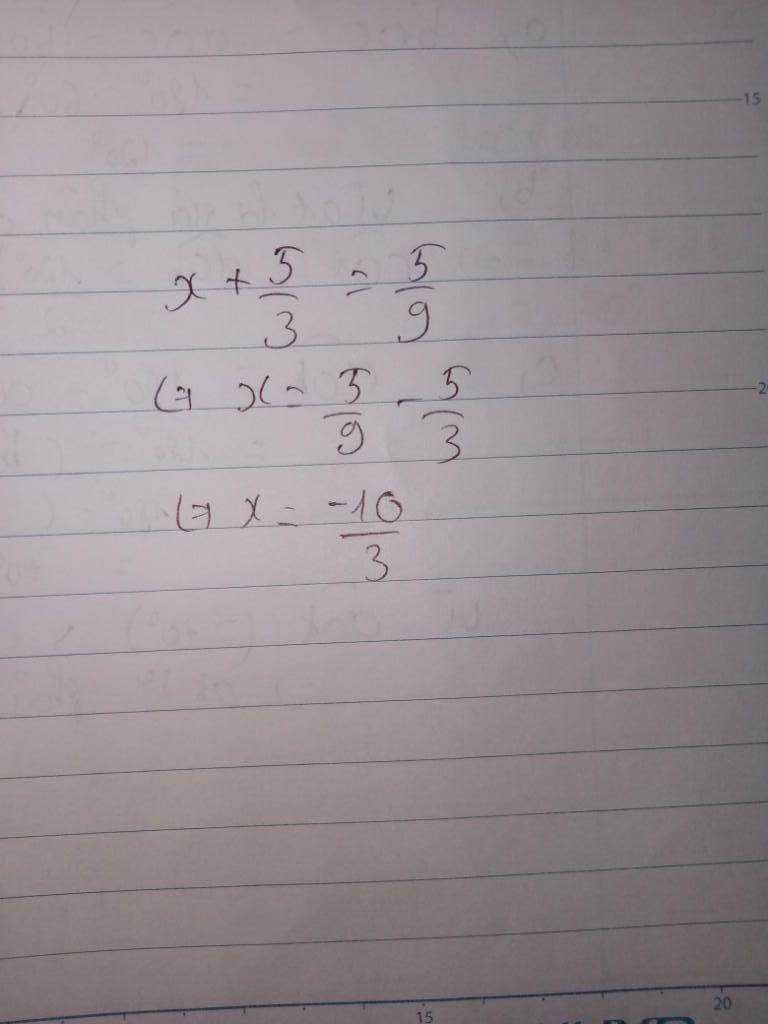 15
x + 5/3 = 5/9
<=> x = 5/9 - 5/3
<=> x = -10/3
15
20